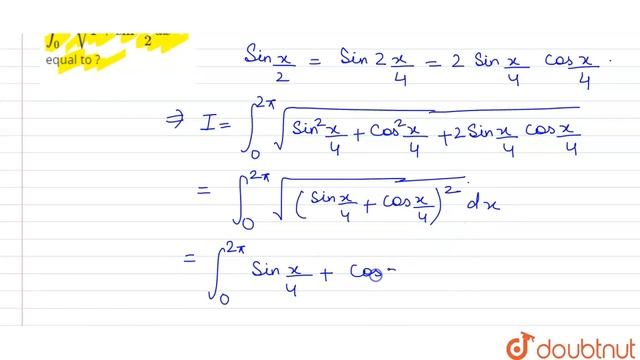 equal to ?
Sin x/2 = Sin 2 x/4 = 2 Sin x/4 Cos x/4 .
⇒ I = ∫₀^2π √(Sin² x/4 + Cos² x/4 + 2 Sin x/4 Cos x/4)
= ∫₀^2π √((Sin x/4 + Cos x/4)²) dx
= ∫₀^2π Sin x/4 + Cos
doubtnut